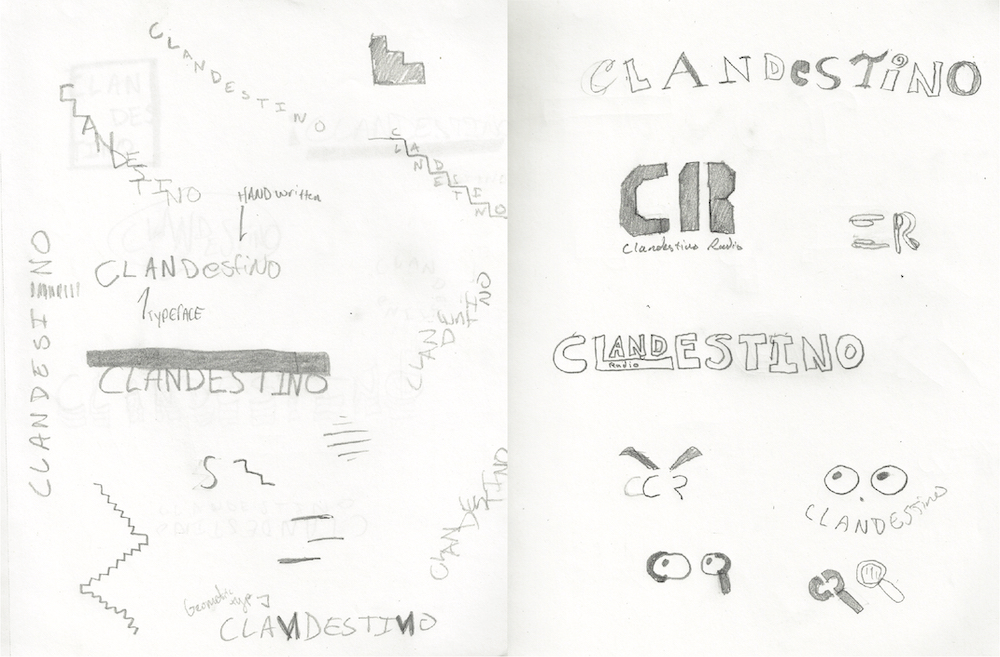 CLANDESTINO
CLANDESTINO
CLANDESTINO
HANDwritten
CLANDestiNO
TYPEFACE
CLANDESTINO
CLANDESTINO
CLANDESTINO
CLANDESTINO
S
CLANDESTINO
Geometric type
CLANDESTINO
CLANDESTiNO
CR
Clandestino Radio
CR
CLANDESTINO
Radio
CCR
CLANDESTino